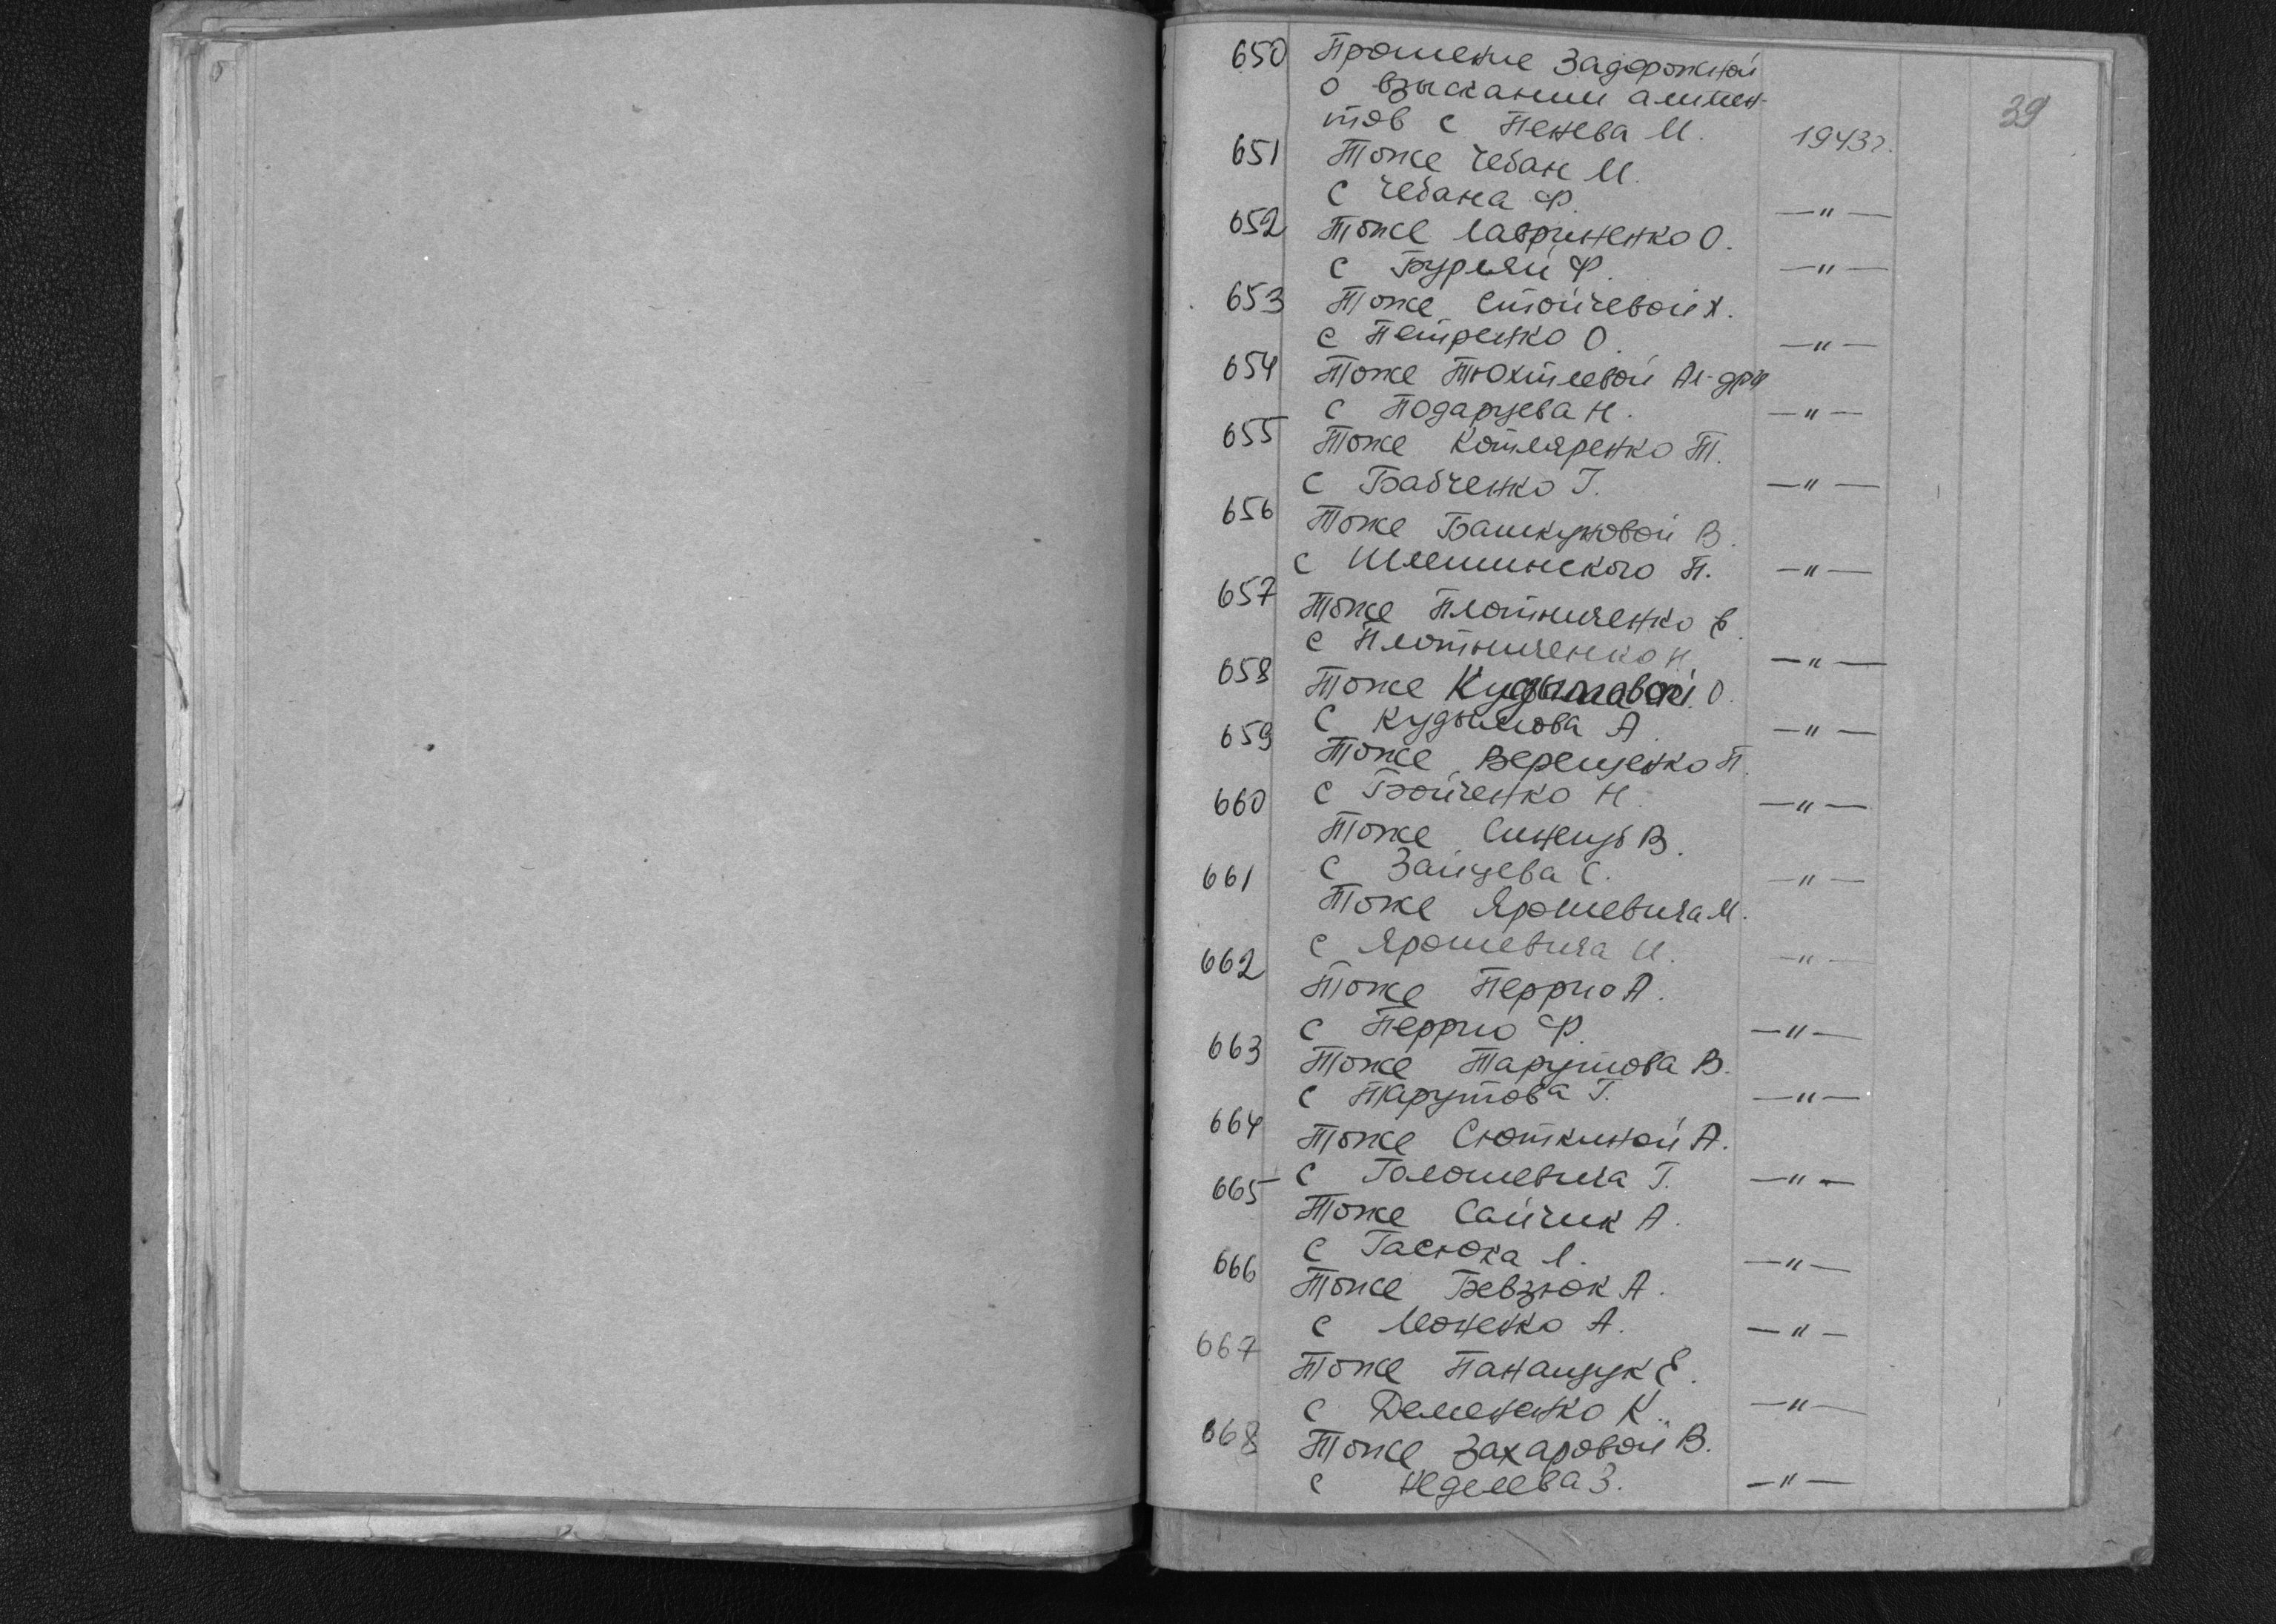 39
650 Прошение Задорожной
о взыскании алимен-
тов с Пенева И. 1943г.
651 Тоже Чебан М.
с Чебана Ф. —"—
652 Тоже Лавриненко О.
с Бурляй Ф. —"—
653 Тоже Стойчевой Х.
с Петренко О. —"—
654 Тоже Тюхтлевой Ал-дры
с Подарцева Н. —"—
655 Тоже Котляренко Т.
с Бабченко Г. —"—
656 Тоже Башкуновой В.
с Шлешинского П. —"—
657 Тоже Плотниченко Е.
с Плотниченко Н. —"—
658 Тоже Кудымовой О.
с Кудымова А. —"—
659 Тоже Верещенко П.
с Бойченко Н. —"—
660 Тоже Синець В.
с Зайцева С. —"—
661 Тоже Ярошевича М.
с Ярошевича И. —"—
662 Тоже Перрио А.
с Перрио Ф. —"—
663 Тоже Тарутова В.
с Тарутова Г. —"—
664 Тоже Сюткиной А.
с Голошевича Г. —"—
665 Тоже Сайчик А.
с Гасюка Л. —"—
666 Тоже Бевзюк А.
с Леоненко А. —"—
667 Тоже Панащук Е.
с Демененко К. —"—
668 Тоже Захаровой В.
с Неделева З. —"—